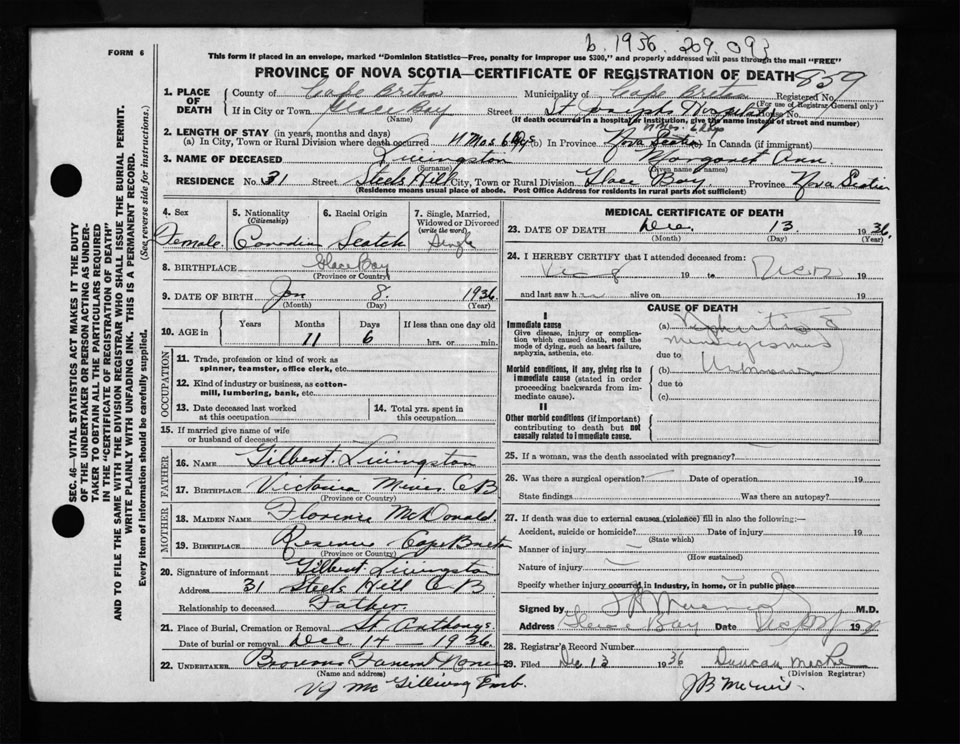 b. 1936. 209.093
FORM 6
This form if placed in an envelope, marked "Dominion Statistics—Free, penalty for improper use $300," and properly addressed will pass through the mail "FREE"
PROVINCE OF NOVA SCOTIA—CERTIFICATE OF REGISTRATION OF DEATH 859
1. PLACE OF DEATH
County of Cape Breton Municipality of Cape Breton Registered No.
(For use of Registrar General only)
If in City or Town Glace Bay Street St Josephs Hospital House No.
(Name) (If death occurred in a hospital or institution, give the name instead of street and number)
2. LENGTH OF STAY (in years, months and days)
11 Mos. 6 Dys
(a) In City, Town or Rural Division where death occurred 11 Mos 6 Dys (b) In Province Nova Scotia (c) In Canada (if immigrant)
3. NAME OF DECEASED Livingston Margaret Ann.
(Surname) (Given name or names)
RESIDENCE No. 31 Street Steels Hill City, Town or Rural Division Glace Bay. Province Nova Scotia
(Residence means usual place of abode. Post Office Address for residents in rural parts not sufficient)
4. Sex
Female.
5. Nationality
(Citizenship)
Canadian
6. Racial Origin
Scotch
7. Single, Married, Widowed or Divorced
(write the word)
Single
8. BIRTHPLACE Glace Bay
(Province or Country)
9. DATE OF BIRTH Jan 8. 1936
(Month) (Day) (Year)
10. AGE in
Years Months Days If less than one day old
11 6 hrs. or min.
OCCUPATION
11. Trade, profession or kind of work as
spinner, teamster, office clerk, etc.
12. Kind of industry or business, as cotton-
mill, lumbering, bank, etc.
13. Date deceased last worked
at this occupation
14. Total yrs. spent in
this occupation
15. If married give name of wife
or husband of deceased
FATHER
16. NAME Gilbert Livingston
17. BIRTHPLACE Victoria Mines C B
(Province or Country)
MOTHER
18. MAIDEN NAME Florence McDonald.
19. BIRTHPLACE Reserve Cape Breton
(Province or Country)
20. Signature of informant Gilbert Livingston
Address 31 Steels Hill C B
Relationship to deceased Father.
21. Place of Burial, Cremation or Removal St. Anthonys.
Date of burial or removal Dec 14 1936.
22. UNDERTAKER Funeral Home
(Name and address)
Mc Gillivray Emb.
MEDICAL CERTIFICATE OF DEATH
23. DATE OF DEATH Dec. 13 1936.
(Month) (Day) (Year)
24. I HEREBY CERTIFY that I attended deceased from:
19 to 19
and last saw h alive on 19
CAUSE OF DEATH
I
Immediate cause
Give disease, injury or complica-
tion which caused death, not the
mode of dying, such as heart failure,
asphyxia, asthenia, etc.
Morbid conditions, if any, giving rise to
immediate cause (stated in order
proceeding backwards from im-
mediate cause).
II
Other morbid conditions (if important)
contributing to death but not
causally related to immediate cause.
(a)
meningismus
due to
(b) Unknown
due to
(c)
25. If a woman, was the death associated with pregnancy?
26. Was there a surgical operation? Date of operation 19
State findings Was there an autopsy?
27. If death was due to external causes (violence) fill in also the following:—
Accident, suicide or homicide? Date of injury 19
(State which)
Manner of injury
(How sustained)
Nature of injury
Specify whether injury occurred in industry, in home, or in public place
Signed by M.D.
Address Glace Bay Date 19
28. Registrar's Record Number
29. Filed 1936 Duncan
(Division Registrar)
SEC. 46—VITAL STATISTICS ACT MAKES IT THE DUTY
OF THE UNDERTAKER OR PERSON ACTING AS UNDER-
TAKER TO OBTAIN ALL THE PARTICULARS REQUIRED
IN THE "CERTIFICATE OF REGISTRATION OF DEATH"
AND TO FILE THE SAME WITH THE DIVISION REGISTRAR WHO SHALL ISSUE THE BURIAL PERMIT.
WRITE PLAINLY WITH UNFADING INK. THIS IS A PERMANENT RECORD.
Every item of information should be carefully supplied. (See reverse side for instructions.)